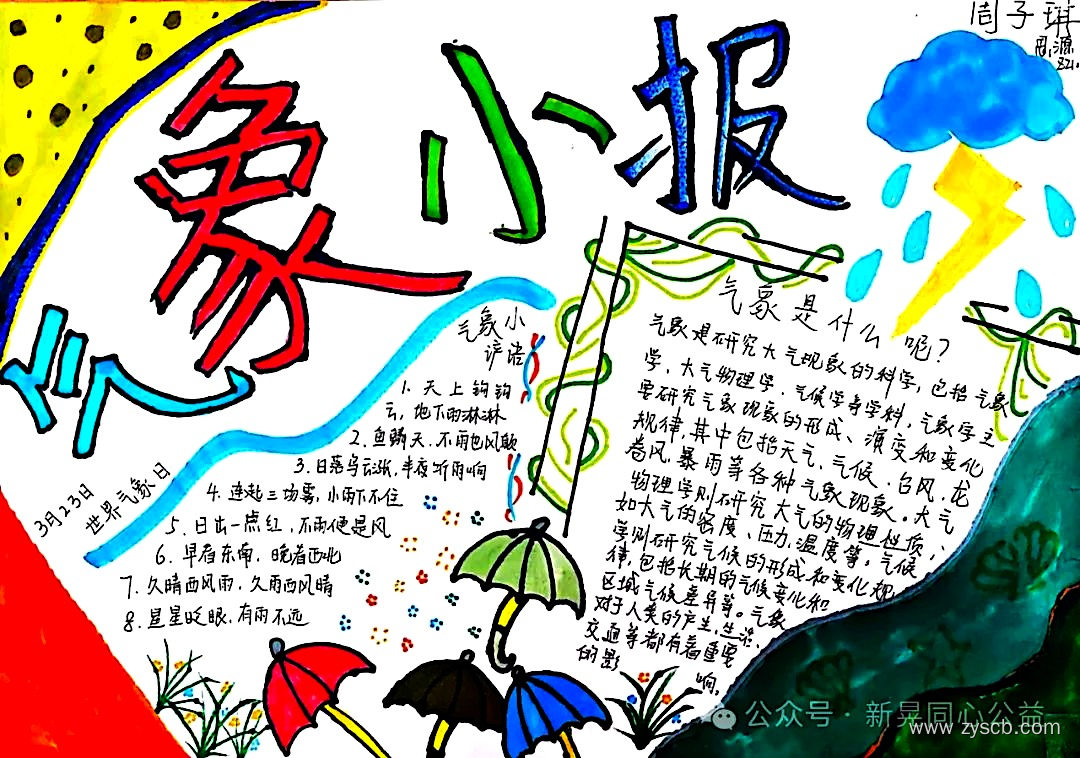 气象小报
周子琪
3月23日
世界气象日
气象小
谚语
1. 天上钩钩
云，地下雨淋淋
2. 鱼鳞天，不雨也风颠
3. 日落乌云涨，半夜听雨响
4. 连起三场雾，小雨下不住
5. 日出一点红，不雨便是风
6. 早看东南，晚看西北
7. 久晴西风雨，久雨西风晴
8. 星星眨眼，有雨不远
气象是什么呢？
气象是研究大气现象的科学，包括气象
学，大气物理学、气候学等学科，气象学主
要研究气象现象的形成、演变和变化
规律，其中包括天气、气候、台风、龙
卷风、暴雨等各种气象现象。大气
物理学则研究大气的物理性质，
如大气的密度、压力、温度等，气候
学则研究气候的形成和变化规
律，包括长期的气候变化和
区域气候差异等。气象
对于人类的产，生活、
交通等都有着重要
的影
响。
公众号·新晃同心公益
www.zyscb.com